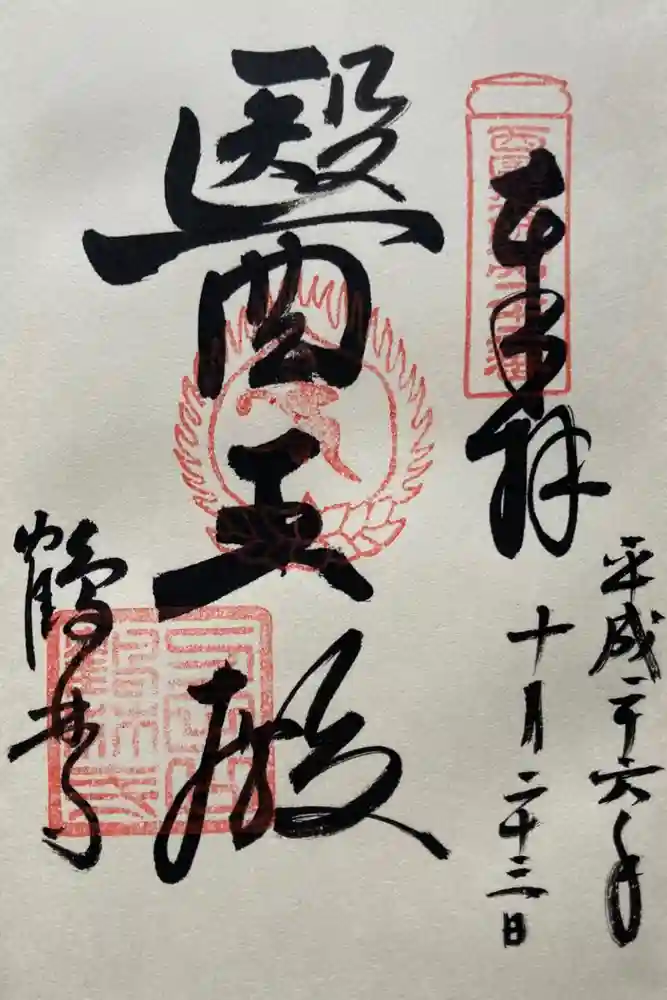 奉拝
平成二十六年
十月二十三日
醫王殿
鶴林寺